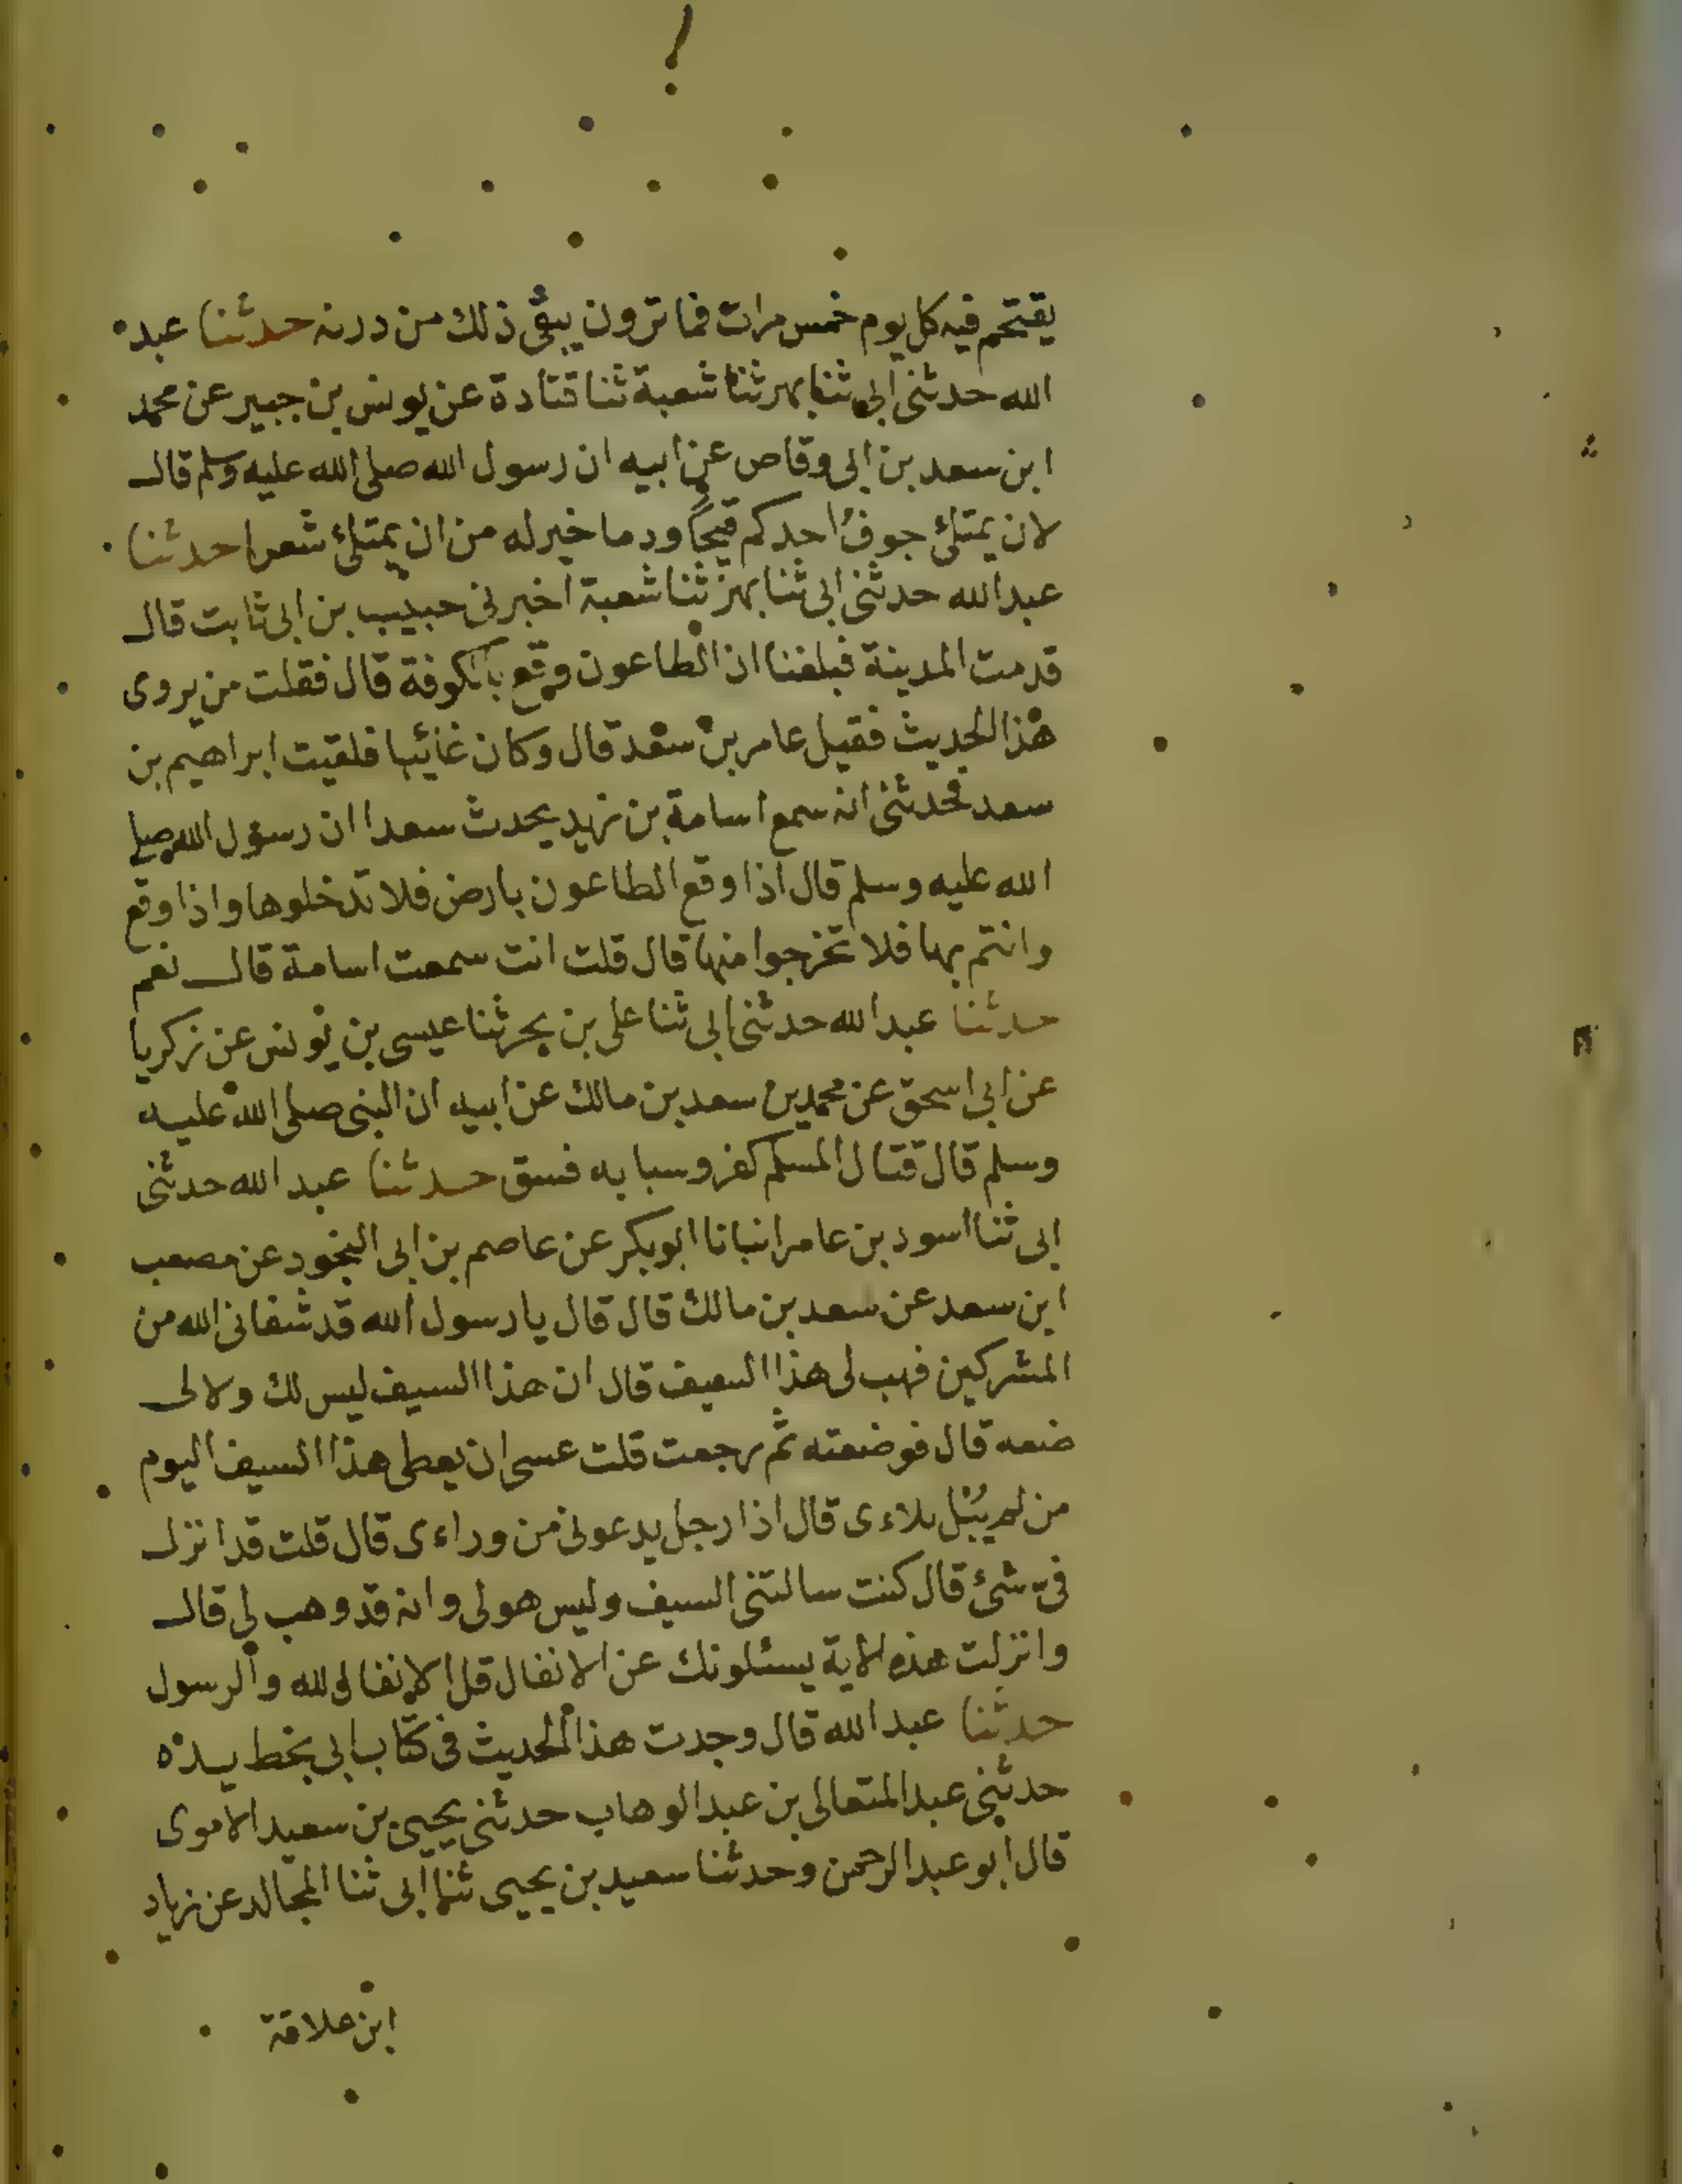 يقتحم فيه كل يوم خمس مرات فما ترون يبقى ذلك من درنه حدثنا عبد
الله حدثنى ابى ثنا بهز ثنا شعبة ثنا قتادة عن يونس بن جبير عن محمد
ابن سعد بن ابى وقاص عن ابيه ان رسول الله صلى الله عليه وسلم قال
لان يمتلئ جوفُ احدكم قيحًا ودما خير له من ان يمتلئ شعرا حدثنا
عبد الله حدثنى ابى ثنا بهز ثنا شعبة اخبرنى حبيب بن ابى ثابت قال
قدمت المدينة فبلغنا ان الطاعون وقع بالكوفة قال فقلت من يروى
هذا الحديث فقيل عامر بن سعد قال وكان غائبا فلقيت ابراهيم بن
سعد فحدثنى انه سمع اسامة بن زيد يحدث سعدا ان رسول الله صلى
الله عليه وسلم قال اذا وقع الطاعون بارض فلا تدخلوها واذا وقع
وانتم بها فلا تخرجوا منها قال قلت انت سمعت اسامة قال نعم
حدثنا عبد الله حدثنى ابى ثنا على بن بحر ثنا عيسى بن يونس عن زكريا
عن ابى اسحق عن محمد بن سعد بن مالك عن ابيه ان النبى صلى الله عليه
وسلم قال قتال المسلم كفر وسبابه فسق حدثنا عبد الله حدثنى
ابى ثنا اسود بن عامر انبانا ابو بكر عن عاصم بن ابى النجود عن مصعب
ابن سعد عن سعد بن مالك قال قال يا رسول الله قد شفانى الله من
المشركين فهب لى هذا السيف قال ان هذا السيف ليس لك ولا لى
ضعه قال فوضعته ثم رجعت قلت عسى ان يعطى هذا السيف اليوم
من لم يُبْل بلاءى قال اذا رجل يدعونى من وراءى قال قلت قد انزل
فىّ شئ قال كنت سالتنى السيف وليس هو لى وانه قد وهب لى قال
وانزلت هذه الاية يسئلونك عن الانفال قل الانفال لله والرسول
حدثنا عبد الله قال وجدت هذا الحديث فى كتاب ابى بخط يده
حدثنى عبد المتعالى بن عبد الوهاب حدثنى يحيى بن سعيد الاموى
قال ابو عبد الرحمن وحدثنا سعيد بن يحيى ثنا ابى ثنا المجالد عن زياد
ابن علاقة